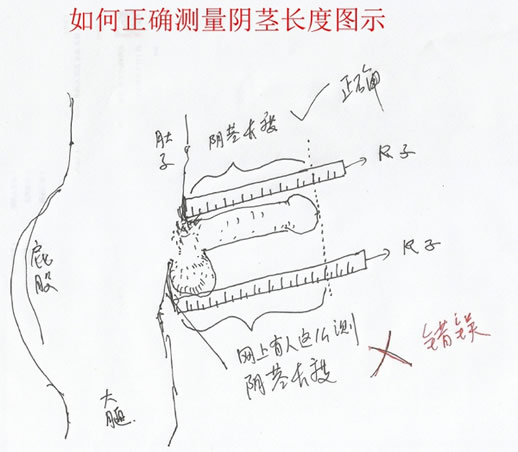 如何正确测量阴茎长度图示
正确
肚子
阴茎长度
尺子
屁股
尺子
网上有人这么测
阴茎长度
错误
大腿